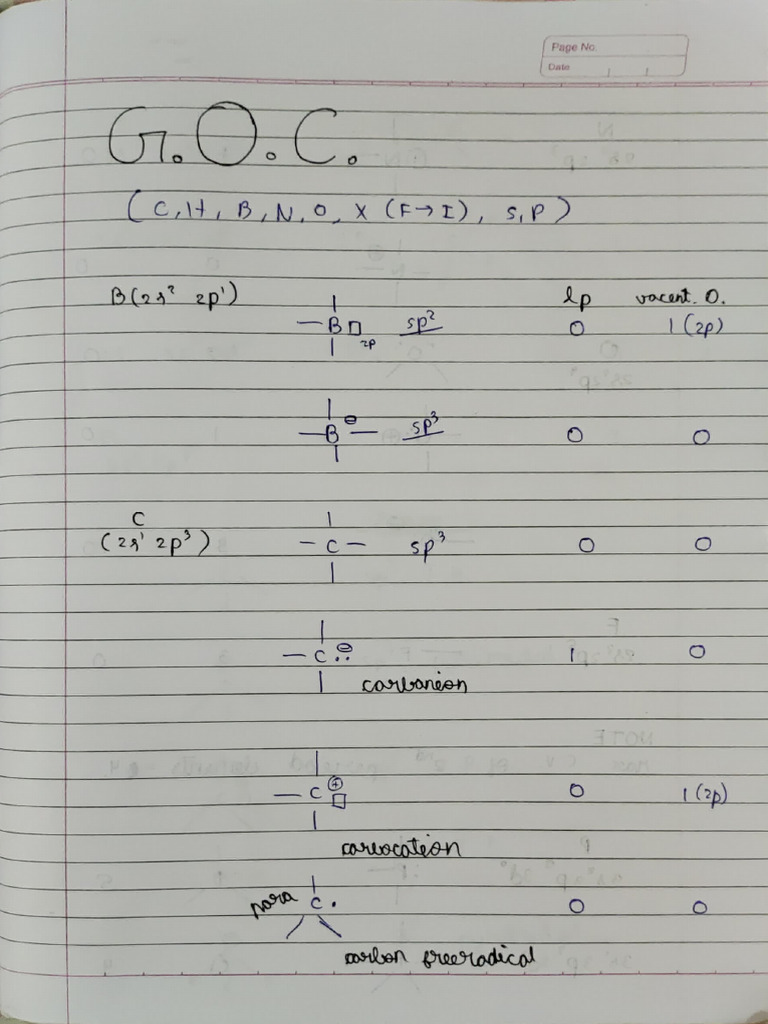 Page No.
Date
G.O.C.
(C, H, B, N, O, X (F→I), S, P)
B(2s² 2p¹) lp vacent. O.
–B□ 2p sp² 0 1(2p)
–B⊖– sp³ 0 0
C
(2s¹ 2p³) –C– sp³ 0 0
–C:⊖ 1 0
carbanion
–C⊕□ 0 1(2p)
carbocation
para C. 0 0
carbon freeradical